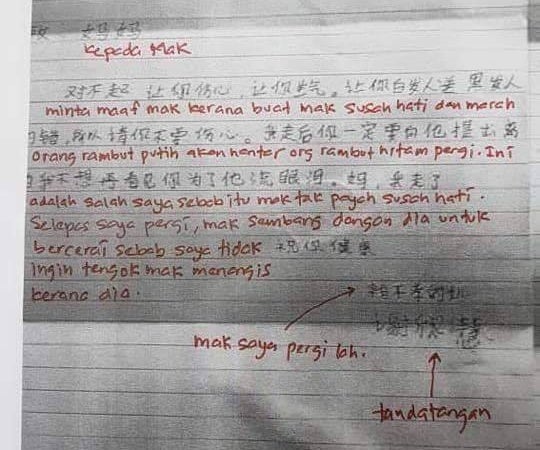 妈妈
kepada Mak
对不起 让你伤心，让你生气。让你白发人送 黑发人
minta maaf mak kerana buat mak susah hati dan marah
错，所以请你不要伤心。我走后你一定要向他提出离
orang rambut putih akan hantar org rambut hitam pergi. Ini
我不想再看见你为了他流眼泪。妈，我走了
adalah salah saya sebab itu mak tak payah susah hati.
Selepas saya pergi, mak sambang dangan dia untuk
bercerai sebab saya tidak 祝你健康
ingin tengok mak menangis
kerana dia.
不孝的
mak saya pergi lah.
tandatangan